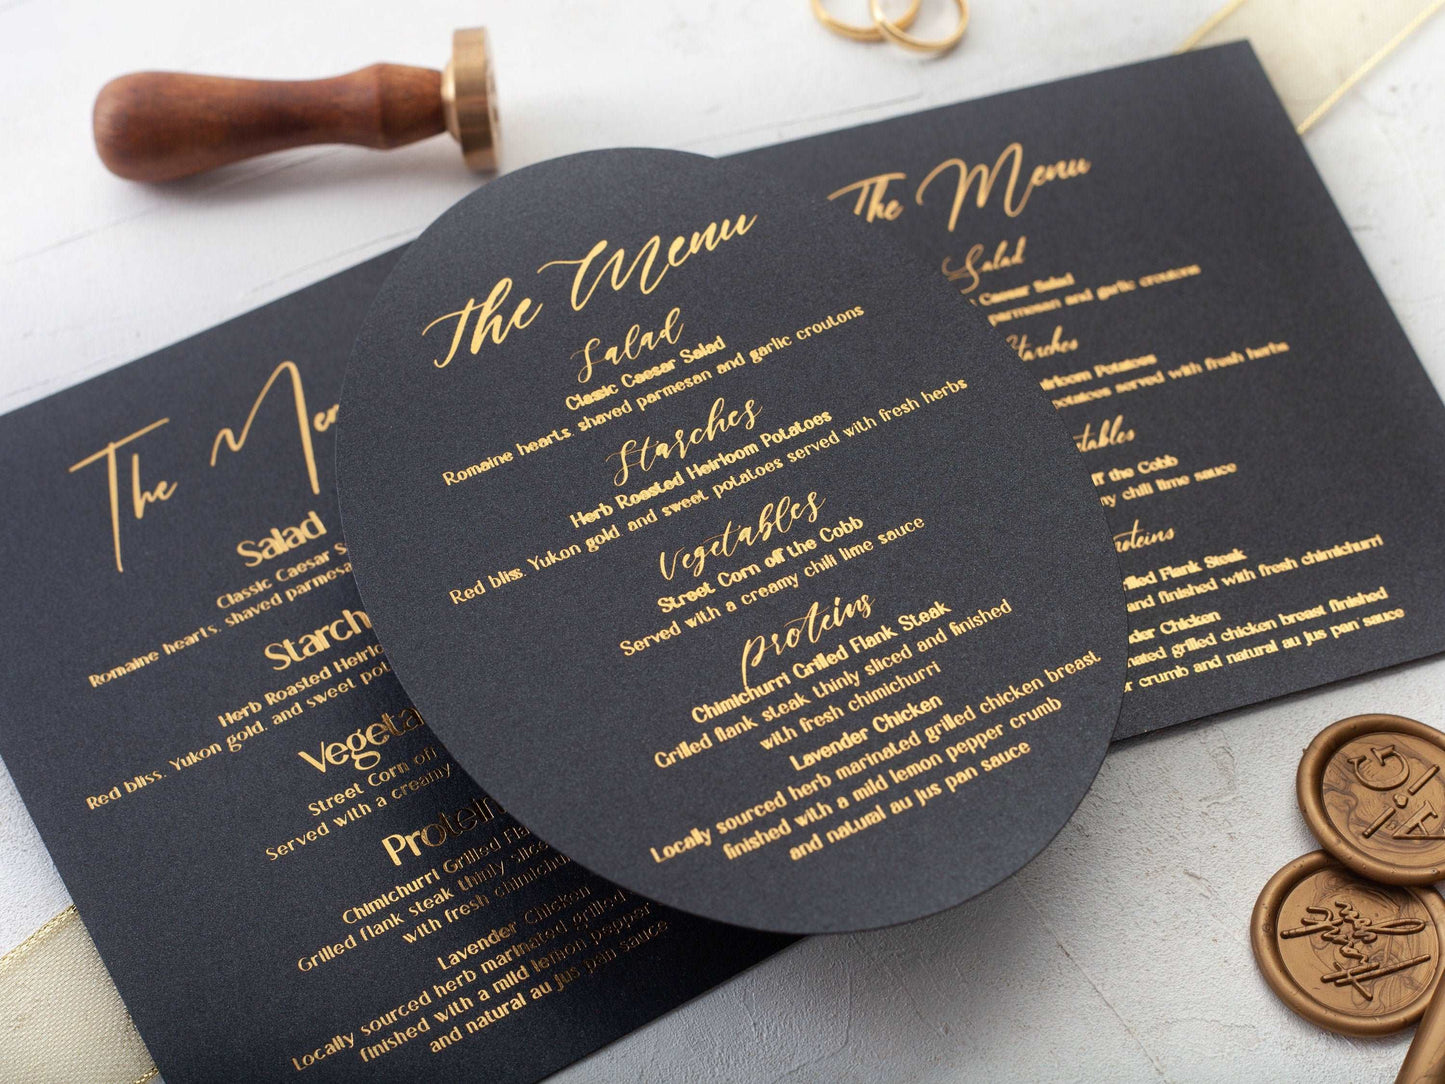 The Menu
Salad
Classic Caesar Salad
Romaine hearts, shaved parmesan and garlic croutons
Starches
Herb Roasted Heirloom Potatoes
Red bliss, Yukon gold, and sweet potatoes served with fresh herbs
Vegetables
Street Corn off the Cobb
Served with a creamy chili lime sauce
Proteins
Chimichurri Grilled Flank Steak
Grilled flank steak thinly sliced and finished
with fresh chimichurri
Lavender Chicken
Locally sourced herb marinated grilled chicken breast
finished with a mild lemon pepper crumb
and natural au jus pan sauce
The Men
Salad
Classic Caesar S
Romaine hearts, shaved parmesa
Starch
Herb Roasted Heirlo
Red bliss, Yukon gold, and sweet pot
Vegeta
Street Corn off
Served with a creamy
Protein
Chimichurri Grilled Fla
Grilled flank steak thinly slice
with fresh chimichur
Lavender Chicken
Locally sourced herb marinated grilled
finished with a mild lemon pepper
and natural au jus pan sauce
The Menu
Salad
Caesar Salad
parmesan and garlic croutons
Starches
irloom Potatoes
potatoes served with fresh herbs
etables
ff the Cobb
my chili lime sauce
roteins
illed Flank Steak
and finished with fresh chimichurri
nder Chicken
nated grilled chicken breast finished
r crumb and natural au jus pan sauce
G